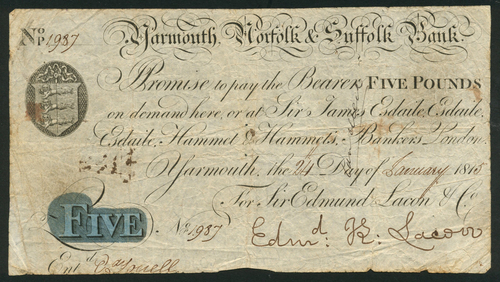 No 1987 Yarmouth, Norfolk & Suffolk Bank
I Promise to pay the Bearer FIVE POUNDS
on demand here, or at Sir James Esdaile, Esdaile,
Esdaile, Hammet & Hammets, Bankers London.
Yarmouth, the 24 Day of January 1815
For Sir Edmund Lacon & Co.
FIVE No 1987 Edmd. K. Lacon
Entd